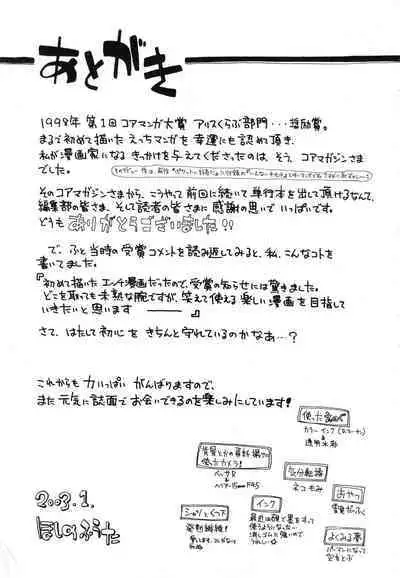 あとがき
1998年 第1回コアマンガ大賞 アリスくらぶ部門・・・奨励賞。
まるで初めて描いたえっちマンガを幸運にも認めて頂き、
私が漫画家になるきっかけを与えてくださったのは、そう、コアマガジンさま
でした。
そのコアマガジンさまから、こうやって前回に続いて単行本を出して頂けるなんて、
編集部の皆さま、そして読者の皆さまに感謝の思いでいっぱいです。
どうもありがとうございました!!
で、ふと当時の受賞コメントを読み返してみると、私、こんなコトを
書いてました。
『初めて描いたエッチ漫画だったので、受賞の知らせには驚きました。
どこを取っても未熟な腕ですが、笑えて使える楽しい漫画を目指して
いきたいと思います ――』
さて、はたして初心をきちんと守れているのかなあ…?
これからも力いっぱいがんばりますので、
また元気に誌面でお会いできるのを楽しみにしています!
2003.1.
ほしのふうた
使った
カラーインク
透明水彩
背景とかの資料
使ったカメラ!
ベッサR
気分転換
ネコもみ
おやつ
インク
最近は
よくみる夢
パーマンになって
空をとぶ